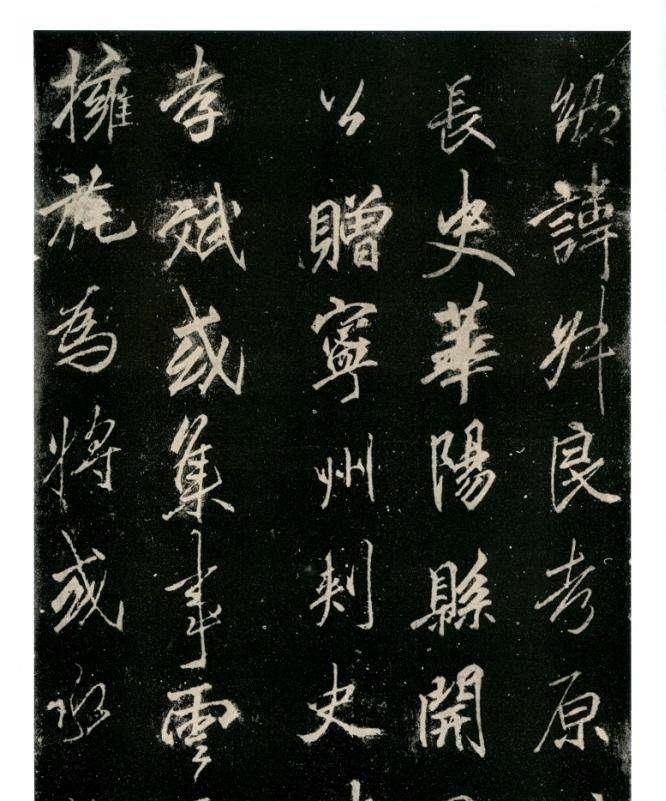 卿諱叔良考原
長史華陽縣開
公贈寧州刺史
孝斌或集事雲
擁旄為將或